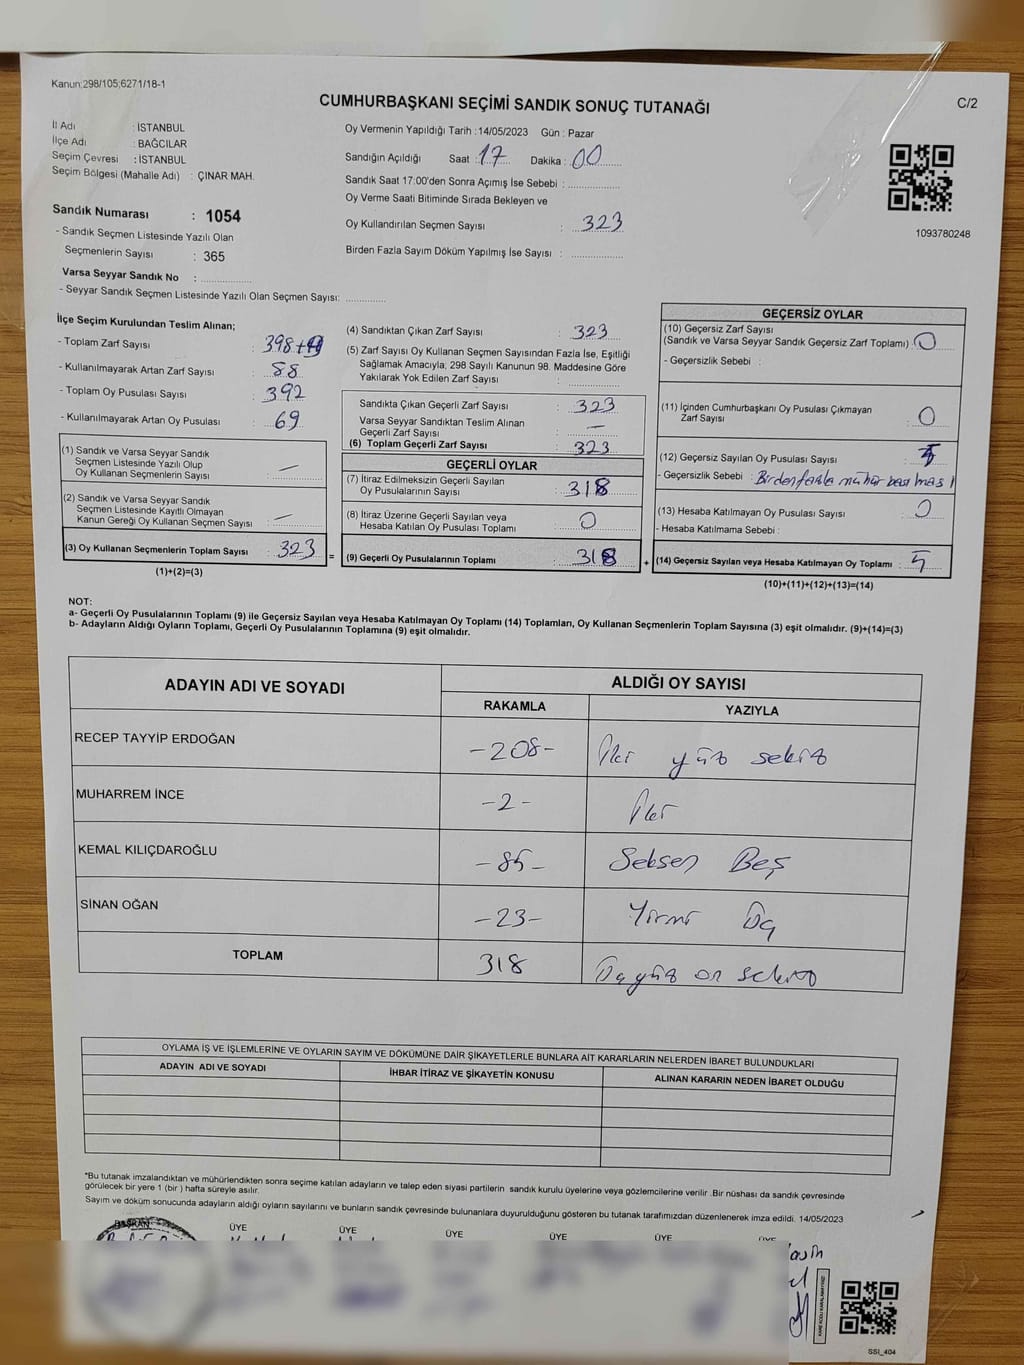 Kanun:298/105;6271/18-1
CUMHURBAŞKANI SEÇİMİ SANDIK SONUÇ TUTANAĞI
C/2
İl Adı : İSTANBUL
İlçe Adı : BAĞCILAR
Seçim Çevresi : İSTANBUL
Seçim Bölgesi (Mahalle Adı) : ÇINAR MAH.
Sandık Numarası : 1054
- Sandık Seçmen Listesinde Yazılı Olan
Seçmenlerin Sayısı : 365
Varsa Seyyar Sandık No : ..............
- Seyyar Sandık Seçmen Listesinde Yazılı Olan Seçmen Sayısı: ............
Oy Vermenin Yapıldığı Tarih : 14/05/2023 Gün : Pazar
Sandığın Açıldığı Saat : 17 Dakika : 00
Sandık Saat 17:00'den Sonra Açımış İse Sebebi : ..............
Oy Verme Saati Bitiminde Sırada Bekleyen ve
Oy Kullandırılan Seçmen Sayısı : 323
Birden Fazla Sayım Döküm Yapılmış İse Sayısı : ..............
1093780248
İlçe Seçim Kurulundan Teslim Alınan;
- Toplam Zarf Sayısı : 398+
- Kullanılmayarak Artan Zarf Sayısı : 88
- Toplam Oy Pusulası Sayısı : 392
- Kullanılmayarak Artan Oy Pusulası : 69
(1) Sandık ve Varsa Seyyar Sandık
Seçmen Listesinde Yazılı Olup
Oy Kullanan Seçmenlerin Sayısı : —
(2) Sandık ve Varsa Seyyar Sandık
Seçmen Listesinde Kayıtlı Olmayan
Kanun Gereği Oy Kullanan Seçmen Sayısı : —
(3) Oy Kullanan Seçmenlerin Toplam Sayısı : 323 =
(1)+(2)=(3)
(4) Sandıktan Çıkan Zarf Sayısı : 323
(5) Zarf Sayısı Oy Kullanan Seçmen Sayısından Fazla İse, Eşitliği
Sağlamak Amacıyla; 298 Sayılı Kanunun 98. Maddesine Göre
Yakılarak Yok Edilen Zarf Sayısı : ..............
Sandıkta Çıkan Geçerli Zarf Sayısı : 323
Varsa Seyyar Sandıktan Teslim Alınan
Geçerli Zarf Sayısı : —
(6) Toplam Geçerli Zarf Sayısı : 323
GEÇERLİ OYLAR
(7) İtiraz Edilmeksizin Geçerli Sayılan
Oy Pusulalarının Sayısı : 318
(8) İtiraz Üzerine Geçerli Sayılan veya
Hesaba Katılan Oy Pusulası Toplamı : 0
(9) Geçerli Oy Pusulalarının Toplamı : 318 +
GEÇERSİZ OYLAR
(10) Geçersiz Zarf Sayısı
(Sandık ve Varsa Seyyar Sandık Geçersiz Zarf Toplamı) : 0
- Geçersizlik Sebebi :
(11) İçinden Cumhurbaşkanı Oy Pusulası Çıkmayan
Zarf Sayısı : 0
(12) Geçersiz Sayılan Oy Pusulası Sayısı : 5
- Geçersizlik Sebebi : Birden fazla mühür basılması
(13) Hesaba Katılmayan Oy Pusulası Sayısı : 0
- Hesaba Katılmama Sebebi :
(14) Geçersiz Sayılan veya Hesaba Katılmayan Oy Toplamı : 5
(10)+(11)+(12)+(13)=(14)
NOT:
a- Geçerli Oy Pusulalarının Toplamı (9) ile Geçersiz Sayılan veya Hesaba Katılmayan Oy Toplamı (14) Toplamları, Oy Kullanan Seçmenlerin Toplam Sayısına (3) eşit olmalıdır. (9)+(14)=(3)
b- Adayların Aldığı Oyların Toplamı, Geçerli Oy Pusulalarının Toplamına (9) eşit olmalıdır.
ADAYIN ADI VE SOYADI ALDIĞI OY SAYISI
RAKAMLA YAZIYLA
RECEP TAYYİP ERDOĞAN -208- İki yüz sekiz
MUHARREM İNCE -2- İki
KEMAL KILIÇDAROĞLU -85- Seksen Beş
SİNAN OĞAN -23- Yirmi Üç
TOPLAM 318 Üçyüz on sekiz
OYLAMA İŞ VE İŞLEMLERİNE VE OYLARIN SAYIM VE DÖKÜMÜNE DAİR ŞİKAYETLERLE BUNLARA AİT KARARLARIN NELERDEN İBARET BULUNDUKLARI
ADAYIN ADI VE SOYADI İHBAR İTİRAZ VE ŞİKAYETİN KONUSU ALINAN KARARIN NEDEN İBARET OLDUĞU
*Bu tutanak imzalandıktan ve mühürlendikten sonra seçime katılan adayların ve talep eden siyasi partilerin sandık kurulu üyelerine veya gözlemcilerine verilir .Bir nüshası da sandık çevresinde
görülecek bir yere 1 (bir ) hafta süreyle asılır.
Sayım ve döküm sonucunda adayların aldığı oyların sayılarını ve bunların sandık çevresinde bulunanlara duyurulduğunu gösteren bu tutanak tarafımızdan düzenlenerek imza edildi. 14/05/2023
BAŞKAN ÜYE ÜYE ÜYE ÜYE ÜYE ÜYE
KARE KODU KARALAMAYINIZ!
SSI_404